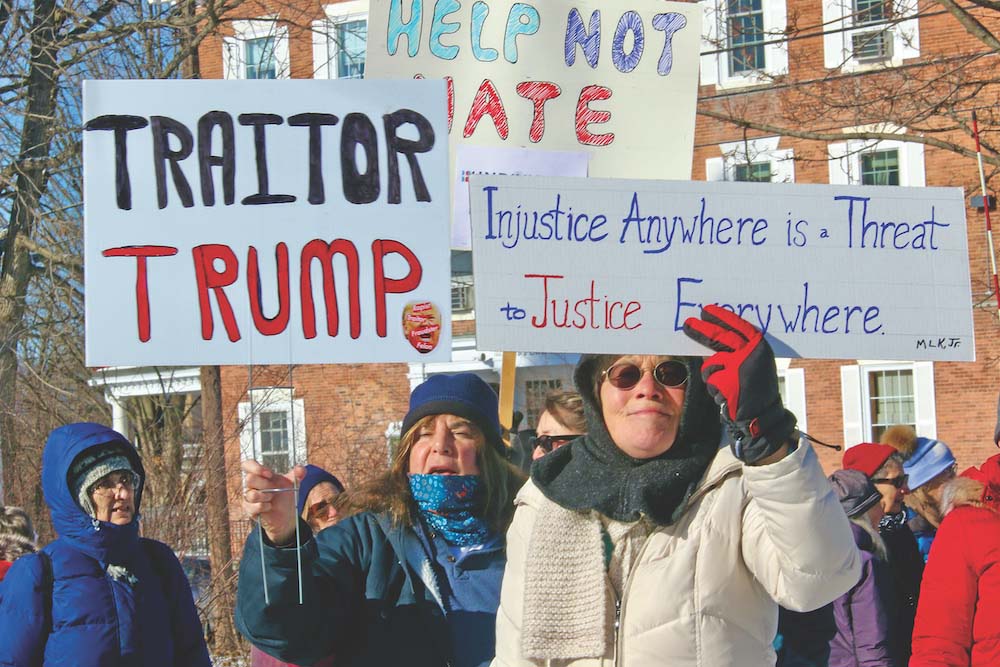 HELP NOT
HATE
TRAITOR
TRUMP
Injustice Anywhere is a Threat
to Justice Everywhere.
MLK, Jr.